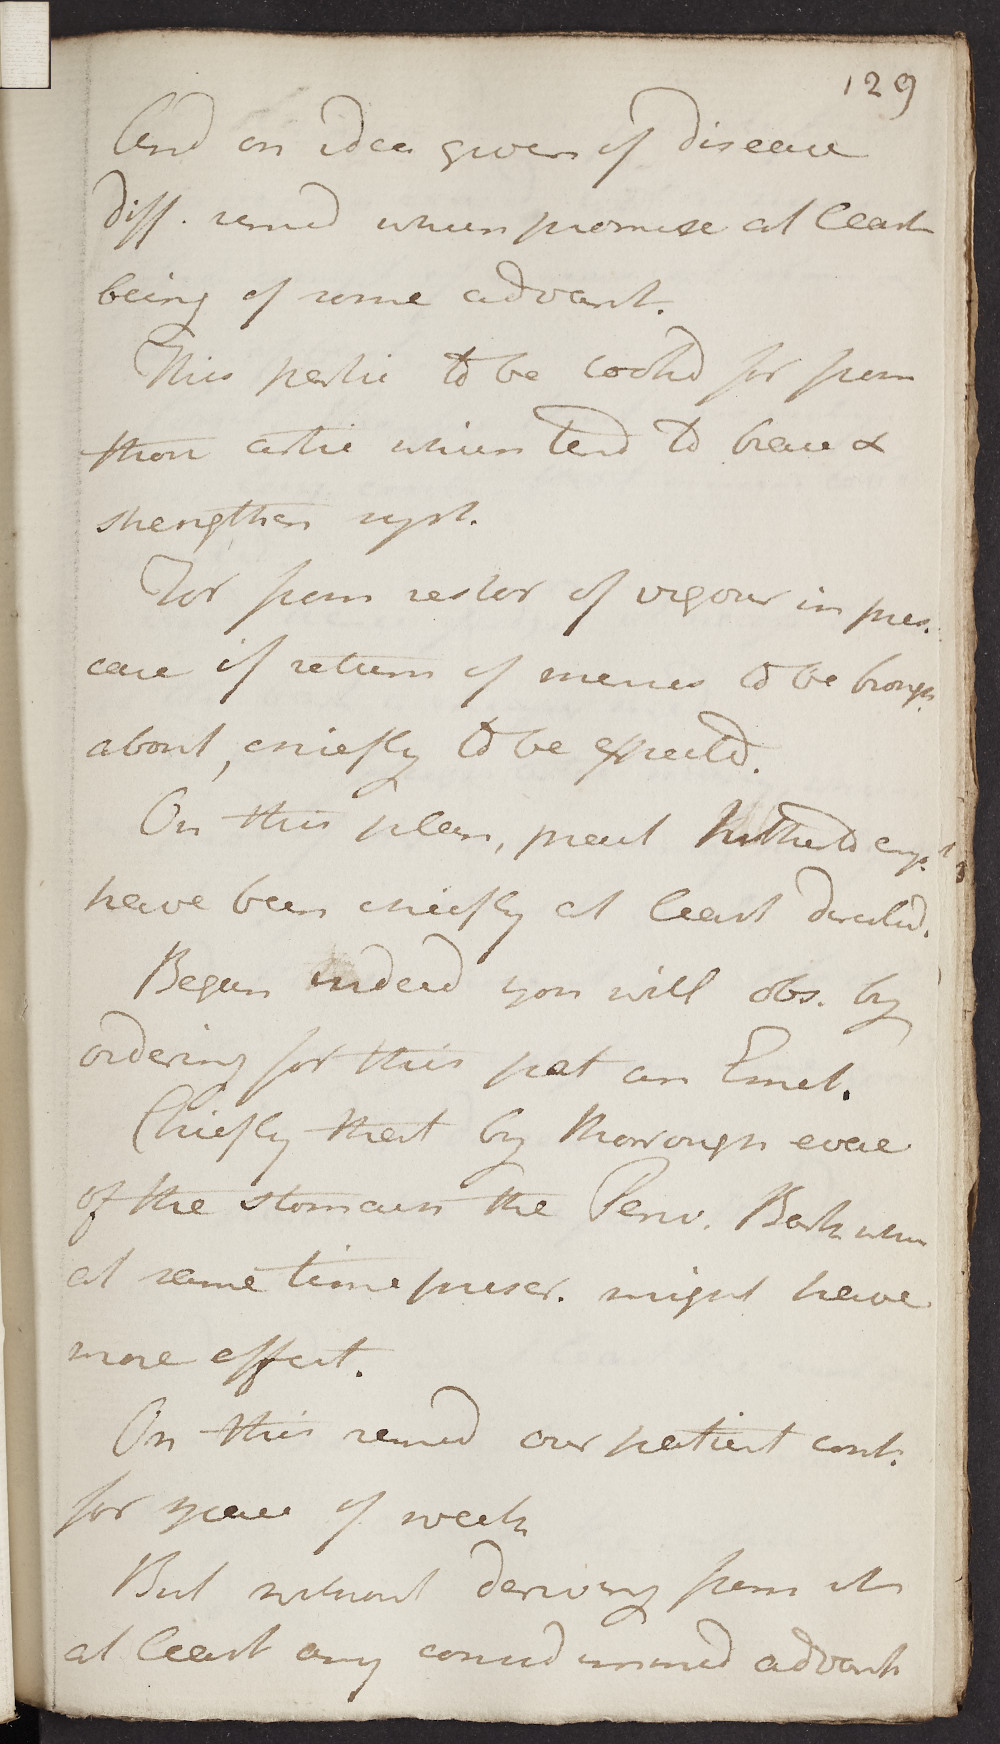 129
And on idea given of disease
diff. remed which promise at least
being of some advant.
This partic to be looked for from
those artic which tend to brace &
strengthen syst.
For from restor of vigour in pres.
case if return of menses to be brougt.
about, chiefly to be expected.
On this plan, pract hitherto empl.
have been chiefly at least directed.
Began indeed you will obs. by
ordering for this pat an Emet.
Chiefly that by thorough evac
of the stomach the Peruv. Bark when
at same time prescr. might have
more effect.
On this remed our patient cont.
for space of week
But without deriving from it
at least any advant